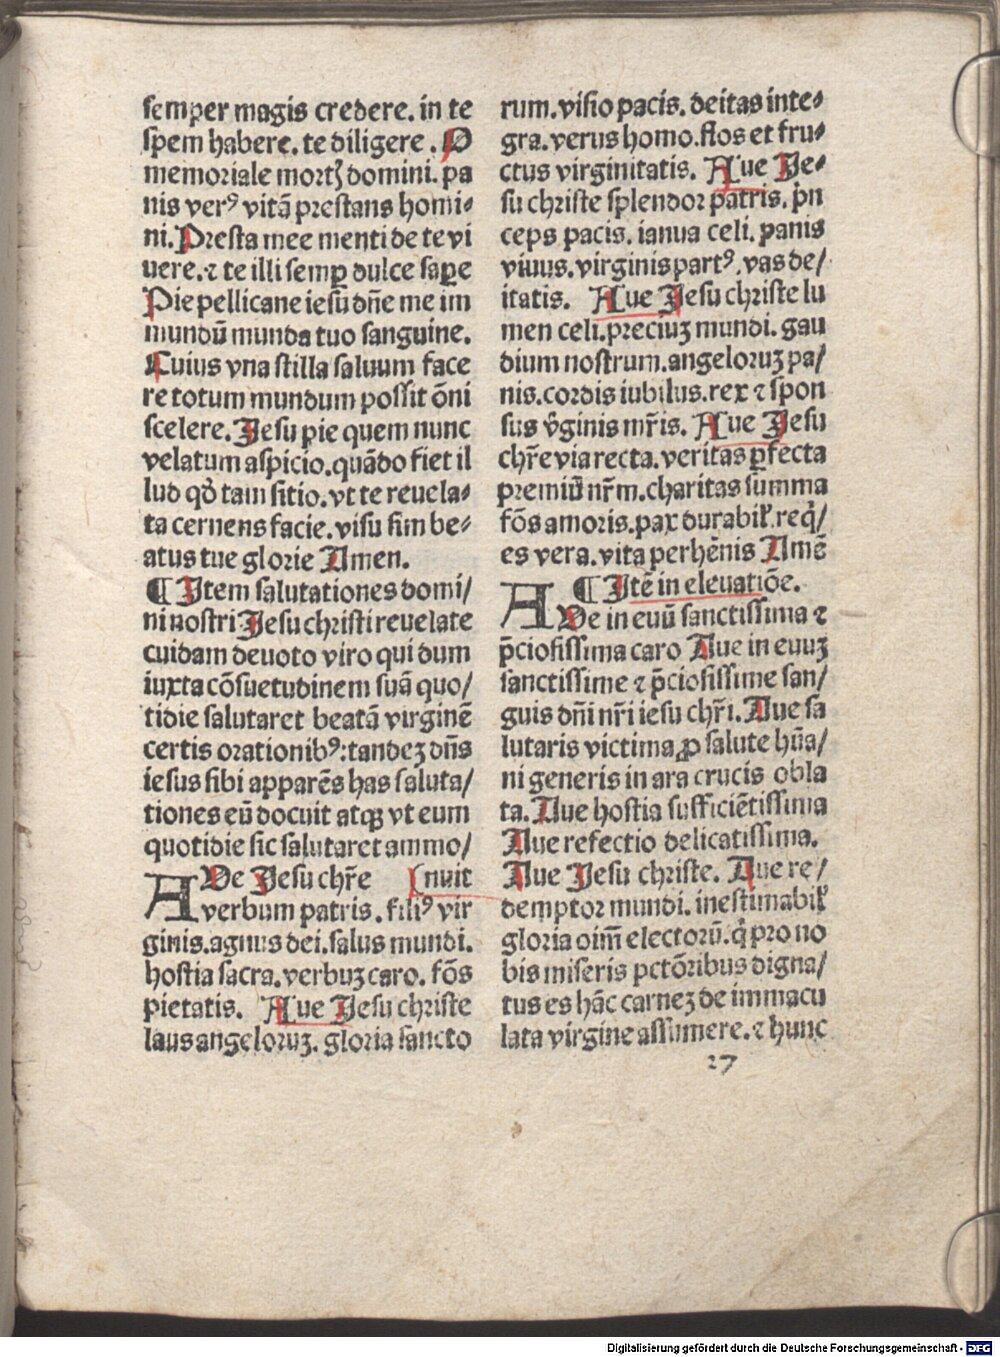 semper magis credere. in te
spem habere. te diligere. O
memoriale mortꝭ domini. pa
nis verꝰ vitā prestans homi⸗
ni. Presta mee menti de te vi
uere. ⁊ te illi semꝑ dulce saꝑe
Pie pellicane iesu dn̄e me im
mundū munda tuo sanguine.
Cuius vna stilla saluum face
re totum mundum possit ōni
scelere. Jesu pie quem nunc
velatum aspicio. quādo fiet il
lud qd̓ tam sitio. vt te reuela⸗
ta cernens facie. visu sim be⸗
atus tue glorie Amen.
¶ Item salutationes domi/
ni nostri Jesu christi reuelate
cuidam deuoto viro qui dum
iuxta cōsuetudinem suā quo/
tidie salutaret beatā virginē
certis orationibꝰ: tandeꝫ dn̄s
iesus sibi apparēs has saluta/
tiones eū docuit atqꝫ vt eum
quotidie sic salutaret ammo/
AVe Jesu chr̄e [nuit
verbum patris. filiꝰ vir
ginis. agnus dei. salus mundi.
hostia sacra. verbuꝫ caro. fōs
pietatis. Aue Jesu christe
laus angeloruꝫ. gloria sancto
rum. visio pacis. deitas inte⸗
gra. verus homo. flos et fru⸗
ctus virginitatis. Aue Je⸗
su christe splendor patris. p̄n
ceps pacis. ianua celi. panis
viuus. virginis partꝰ. vas de/
itatis. Aue Jesu christe lu
men celi. preciuꝫ mundi. gau
dium nostrum. angeloruꝫ pa/
nis. cordis iubilus. rex ⁊ spon
sus v̄ginis mr̄is. Aue Jesu
chr̄e via recta. veritas ꝑfecta
premiū nr̄m. charitas summa
fōs amoris. pax durabil̓. req̓/
es vera. vita perhēnis Amē
¶ Itē in eleuatiōe.
AVe in euū sanctissima ⁊
p̄ciosissima caro Aue in euuꝫ
sanctissime ⁊ p̄ciosissime san/
guis dn̄i nr̄i iesu chr̄i. Aue sa
lutaris victima ꝓ salute hūa/
ni generis in ara crucis obla
ta. Aue hostia sufficiētissima
Aue refectio delicatissima.
Aue Jesu christe. Aue re/
demptor mundi. inestimabil̓
gloria oīm electorū. q̓ pro no
bis miseris pctōribus digna/
tus es hāc carneꝫ de immacu
lata virgine assumere. ⁊ hunc
27
Digitalisierung gefördert durch die Deutsche Forschungsgemeinschaft - DFG